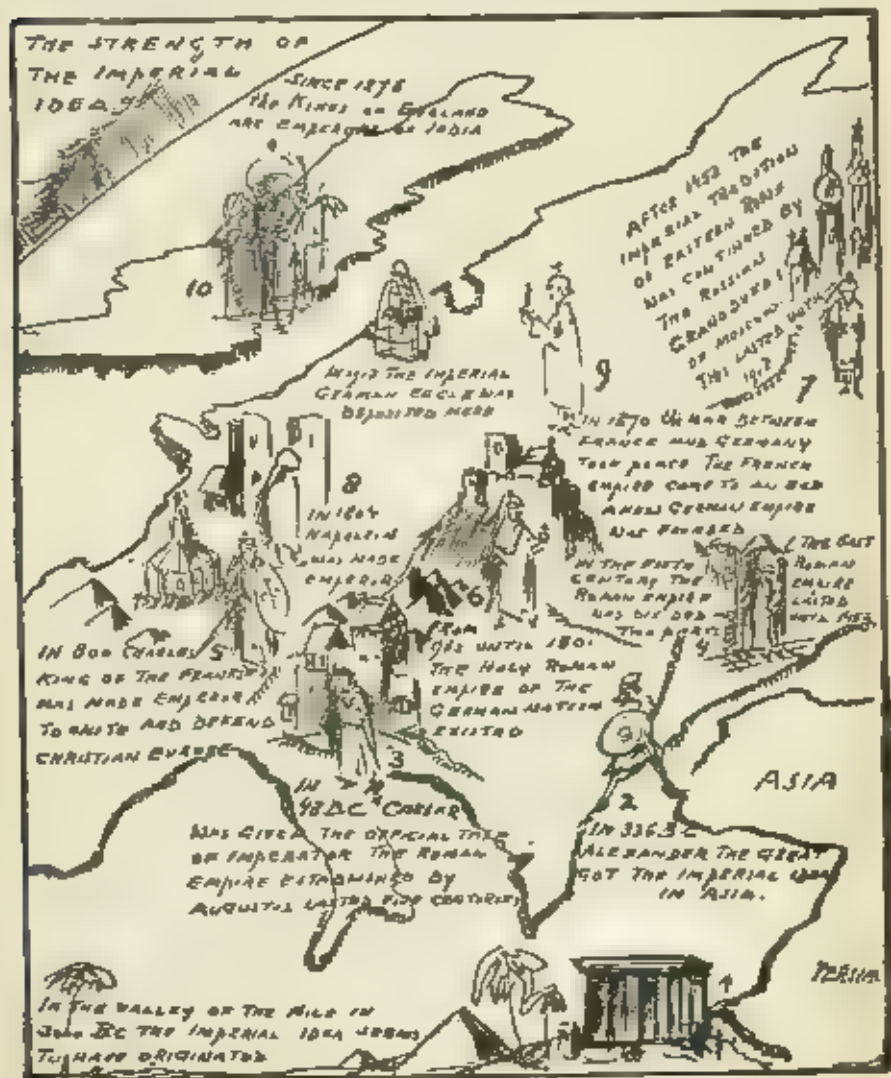 THE STRENGTH OF
THE IMPERIAL
IDEA
SINCE 1876
THE KINGS OF ENGLAND
ARE EMPERORS OF INDIA
10
AFTER 1453 THE
IMPERIAL TRADITION
OF EASTERN ROME
WAS CONTINUED BY
THE RUSSIAN
GRAND DUKES
OF MOSCOW.
THIS LASTED UNTIL
1917
7
9
THE IMPERIAL
GERMAN
DEPOSITED HERE
IN 1870 WAR BETWEEN
FRANCE AND GERMANY
TOOK PLACE THE FRENCH
EMPIRE CAME TO AN END
GERMAN EMPIRE
WAS FOUNDED
8
IN 1804
NAPOLEON
WAS MADE
EMPEROR
IN THE FIFTH
CENTURY THE
ROMAN EMPIRE
WAS DIVIDED
TWO PARTS
4
THE EAST
ROMAN
EMPIRE
LASTED
UNTIL 1453
6
FROM
UNTIL
THE HOLY ROMAN
EMPIRE OF THE
GERMAN NATION
EXISTED
IN 800 CHARLES 5
KING OF THE FRANKS
WAS MADE EMPEROR
TO UNITE AND DEFEND
CHRISTIAN EUROPE
3
IN
48 B.C CAESAR
WAS GIVEN THE OFFICIAL TITLE
OF IMPERATOR THE ROMAN
EMPIRE ESTABLISHED BY
AUGUSTUS LASTED FIVE CENTURIES
ASIA
2
IN 336 B C
ALEXANDER THE GREAT
GOT THE IMPERIAL IDEA
IN ASIA.
PERSIA
1
IN THE VALLEY OF THE NILE IN
BC THE IMPERIAL IDEA SEEMS
TO HAVE ORIGINATED